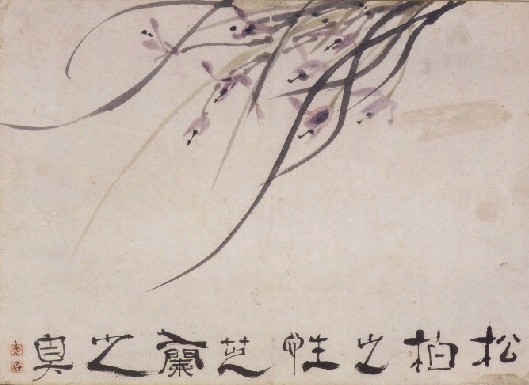 松柏之性芝蘭之臭